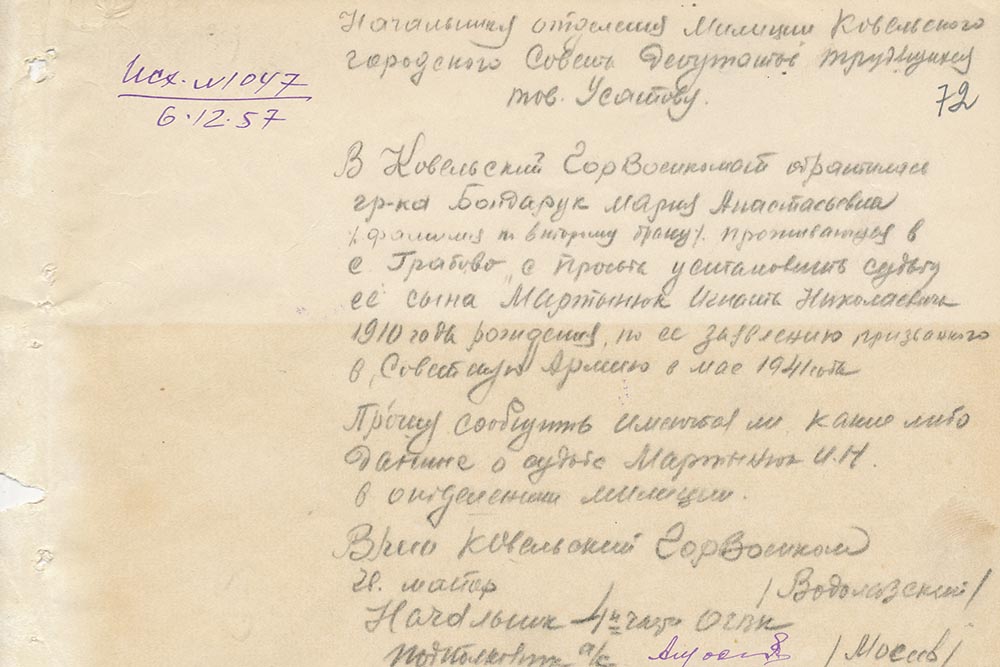 Начальнику отделения Милиции Ковельского
городского Совета Депутатов трудящихся
тов. Усатову.
Исх. №1047
6.12.57
72
В Ковельский ГорВоенкомат обратилась
гр-ка Бондарук Мария Анастасьевна
/фамилия по второму браку/. проживающая в
с. Грабово, с просьбой установить судьбу
её сына Мартынюк Игнат Николаевич
1910 года рождения, по её заявлению призванного
в Советскую Армию в мае 1941 года
Прошу сообщить имеются ли какие либо
данные о судьбе Мартынюк И.Н.
в отделении милиции.
Ковельский ГорВоенком
майор /Водолазский/
Начальник 4й части
подполковник а/с /Мосив/